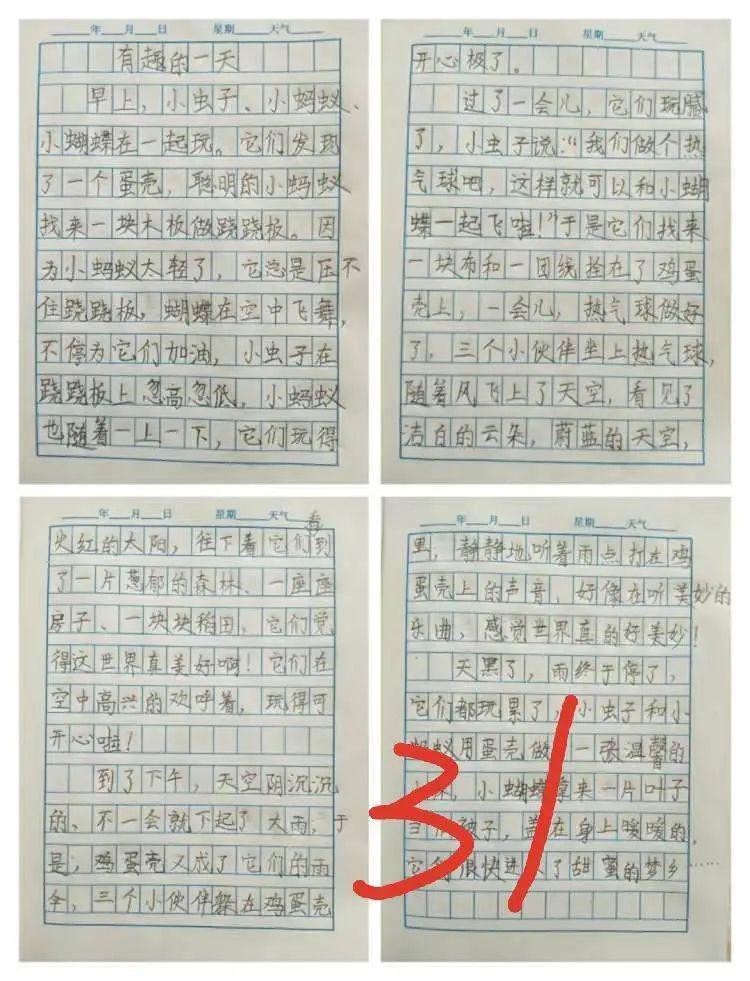 年 月 日 星期 天气
有趣的一天
早上，小虫子、小蚂蚁、
小蝴蝶在一起玩。它们发现
了一个蛋壳，聪明的小蚂蚁
找来一块木板做跷跷板。因
为小蚂蚁太轻了，它总是压不
住跷跷板，蝴蝶在空中飞舞，
不停为它们加油，小虫子在
跷跷板上忽高忽低，小蚂蚁
也随着一上一下，它们玩得
年 月 日 星期 天气
开心极了。
过了一会儿，它们玩腻
了，小虫子说：“我们做个热
气球吧，这样就可以和小蝴
蝶一起飞啦！”于是它们找来
一块布和一团线拴在了鸡蛋
壳上，一会儿，热气球做好
了，三个小伙伴坐上热气球，
随着风飞上了天空，看见了
洁白的云朵，蔚蓝的天空，
年 月 日 星期 天气
火红的太阳，往下看它们看到
了一片葱郁的森林、一座座
房子、一块块稻田，它们觉
得这世界真美好啊！它们在
空中高兴的欢呼着，玩得可
开心啦！
到了下午，天空阴沉沉
的、不一会就下起了大雨，于
是；鸡蛋壳又成了它们的雨
伞，三个小伙伴躲在鸡蛋壳
年 月 日 星期 天气
里，静静地听着雨点打在鸡
蛋壳上的声音，好像在听美妙的
乐曲，感觉世界真的好美妙！
天黑了，雨终于停了，
它们都玩累了，小虫子和小
蚂蚁用蛋壳做 一张温馨的
小蝴蝶拿来一片叶子
当 被子，盖在身上暖暖的，
它们很快进入了甜蜜的梦乡……
31